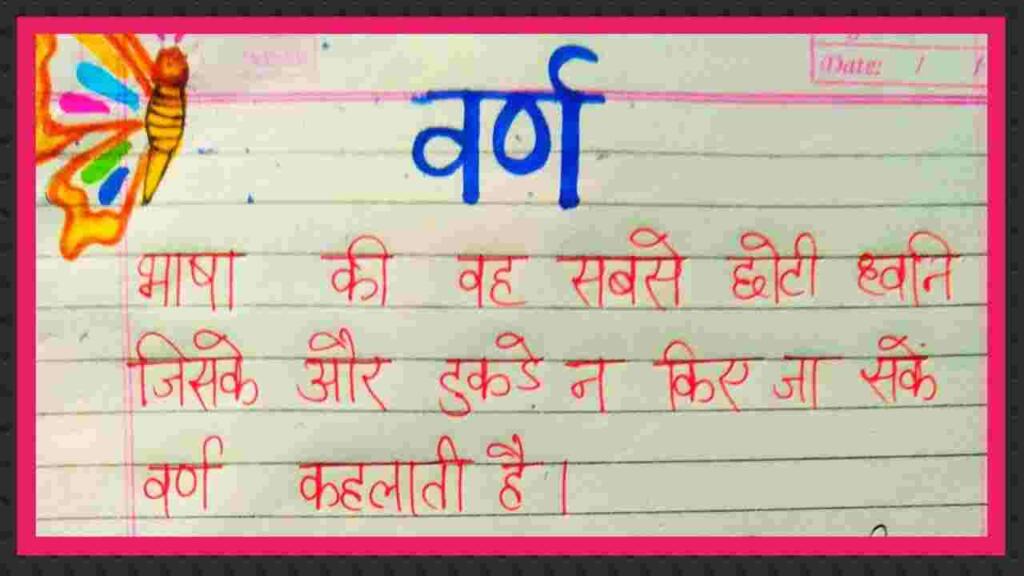 Date: / /
वर्ण
भाषा की वह सबसे छोटी ध्वनि
जिसके और टुकडे न किए जा सकें
वर्ण कहलाती है।